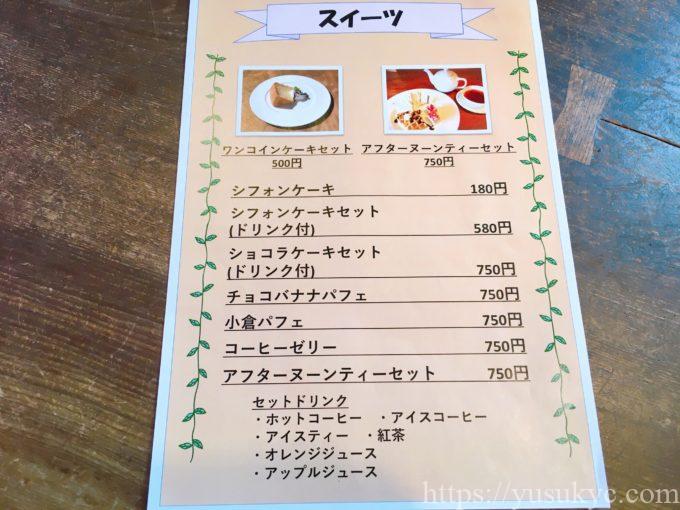 スイーツ
ワンコインケーキセット アフターヌーンティーセット
500円 750円
シフォンケーキ 180円
シフォンケーキセット
(ドリンク付) 580円
ショコラケーキセット
(ドリンク付) 750円
チョコバナナパフェ 750円
小倉パフェ 750円
コーヒーゼリー 750円
アフターヌーンティーセット 750円
セットドリンク
・ホットコーヒー ・アイスコーヒー
・アイスティー ・紅茶
・オレンジジュース
・アップルジュース
https://yusukyc.com